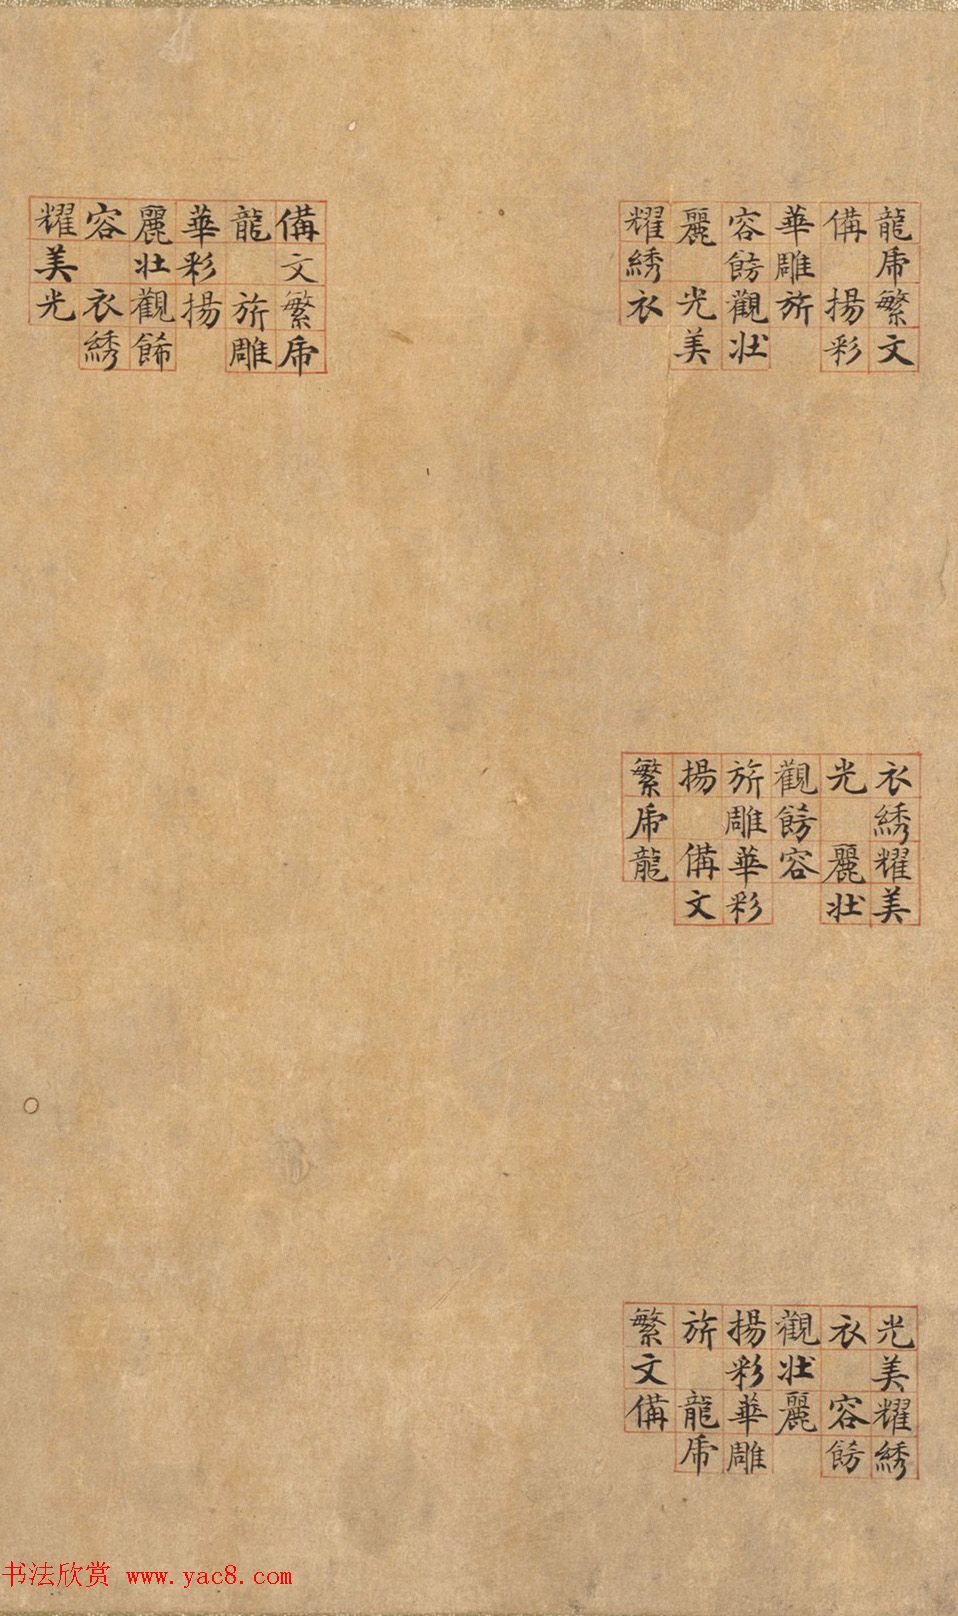 龍虎繁文
備揚彩
華雕旂
容餝觀壯
麗光美
耀綉衣
衣綉耀美
光麗壯
觀餝容
旂雕華彩
揚備文
繁虎龍
光美耀綉
衣容餝
觀壯麗
揚彩華雕
旂龍虎
繁文備
備文繁虎
龍旂雕
華彩揚
麗壯觀餙
容衣綉
耀美光
书法欣赏 www.yac8.com